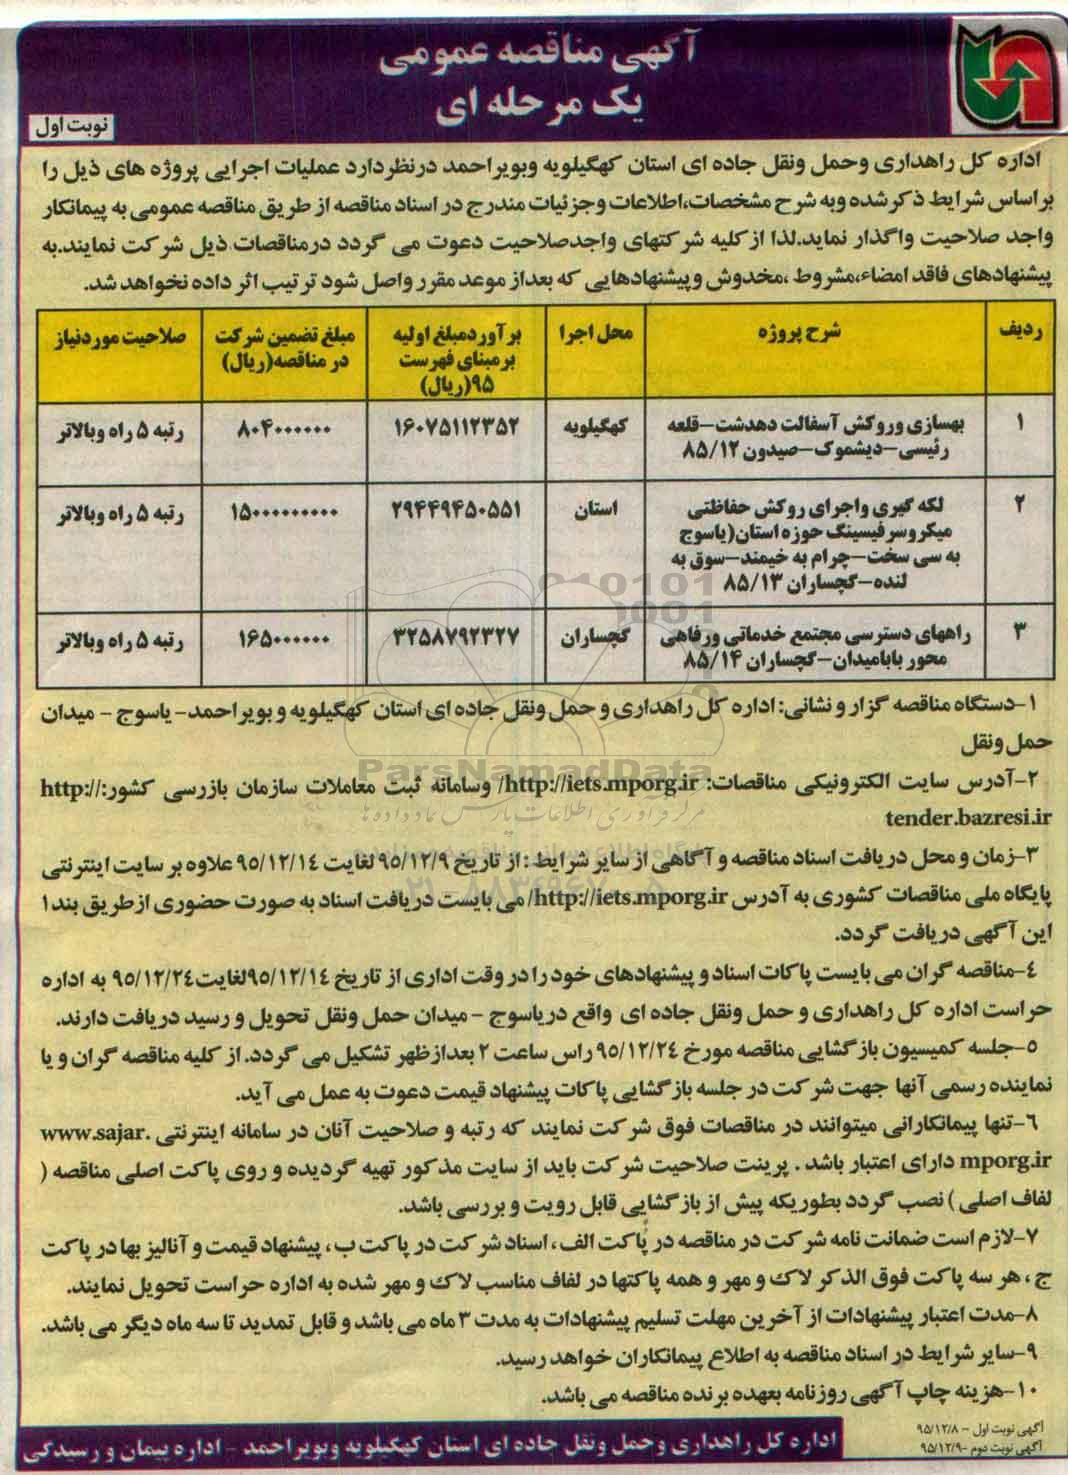 آگهی مناقصه عمومی
یک مرحله ای
نوبت اول
اداره کل راهداری وحمل ونقل جاده ای استان کهگیلویه وبویراحمد درنظردارد عملیات اجرایی پروژه های ذیل را
براساس شرایط ذکرشده وبه شرح مشخصات،اطلاعات وجزئیات مندرج در اسناد مناقصه از طریق مناقصه عمومی به پیمانکار
واجد صلاحیت واگذار نماید.لذا ازکلیه شرکتهای واجدصلاحیت دعوت می گردد درمناقصات ذیل شرکت نمایند.به
پیشنهادهای فاقد امضاء،مشروط ،مخدوش وپیشنهادهایی که بعداز موعد مقررواصل شود ترتیب اثر داده نخواهد شد.
ردیف | شرح پروژه | محل اجرا | برآوردمبلغ اولیه برمبنای فهرست ۹۵(ریال) | مبلغ تضمین شرکت در مناقصه(ریال) | صلاحیت موردنیاز
۱ | بهسازی وروکش آسفالت دهدشت–قلعه رئیسی–دیشموک–صیدون ۸۵/۱۲ | کهگیلویه | ۱۶۰۷۵۱۱۲۳۵۲ | ۸۰۴۰۰۰۰۰۰ | رتبه ۵ راه وبالاتر
۲ | لکه گیری واجرای روکش حفاظتی میکروسرفیسینگ حوزه استان(یاسوج به سی سخت–چرام به خیمند–سوق به لنده–گچساران ۸۵/۱۳ | استان | ۲۹۴۴۹۴۵۰۵۵۱ | ۱۵۰۰۰۰۰۰۰۰۰ | رتبه ۵ راه وبالاتر
۳ | راههای دسترسی مجتمع خدماتی ورفاهی محور بابامیدان–گچساران ۸۵/۱۴ | گچساران | ۳۲۵۸۷۹۲۳۲۷ | ۱۶۵۰۰۰۰۰۰ | رتبه ۵ راه وبالاتر
۱–دستگاه مناقصه گزار و نشانی: اداره کل راهداری و حمل ونقل جاده ای استان کهگیلویه و بویراحمد– یاسوج – میدان
حمل ونقل
۲–آدرس سایت الکترونیکی مناقصات: http://iets.mporg.ir/ وسامانه ثبت معاملات سازمان بازرسی کشور:http://
tender.bazresi.ir
۳–زمان و محل دریافت اسناد مناقصه و آگاهی از سایر شرایط : از تاریخ ۹۵/۱۲/۹ لغایت ۹۵/۱۲/۱۴ علاوه بر سایت اینترنتی
پایگاه ملی مناقصات کشوری به آدرس http://iets.mporg.ir/ می بایست دریافت اسناد به صورت حضوری ازطریق بند۱
این آگهی دریافت گردد.
۴–مناقصه گران می بایست پاکات اسناد و پیشنهادهای خود را در وقت اداری از تاریخ ۹۵/۱۲/۱۴لغایت۹۵/۱۲/۲۴ به اداره
حراست اداره کل راهداری و حمل ونقل جاده ای واقع دریاسوج – میدان حمل ونقل تحویل و رسید دریافت دارند.
۵–جلسه کمیسیون بازگشایی مناقصه مورخ ۹۵/۱۲/۲۴ راس ساعت ۲ بعدازظهر تشکیل می گردد. از کلیه مناقصه گران و یا
نماینده رسمی آنها جهت شرکت در جلسه بازگشایی پاکات پیشنهاد قیمت دعوت به عمل می آید.
۶–تنها پیمانکارانی میتوانند در مناقصات فوق شرکت نمایند که رتبه و صلاحیت آنان در سامانه اینترنتی www.sajar.
mporg.ir دارای اعتبار باشد . پرینت صلاحیت شرکت باید از سایت مذکور تهیه گردیده و روی پاکت اصلی مناقصه (
لفاف اصلی ) نصب گردد بطوریکه پیش از بازگشایی قابل رویت و بررسی باشد.
۷–لازم است ضمانت نامه شرکت در مناقصه در پاکت الف ، اسناد شرکت در پاکت ب ، پیشنهاد قیمت و آنالیز بها در پاکت
ج ، هر سه پاکت فوق الذکر لاک و مهر و همه پاکتها در لفاف مناسب لاک و مهر شده به اداره حراست تحویل نمایند.
۸–مدت اعتبار پیشنهادات از آخرین مهلت تسلیم پیشنهادات به مدت ۳ ماه می باشد و قابل تمدید تا سه ماه دیگر می باشد.
۹–سایر شرایط در اسناد مناقصه به اطلاع پیمانکاران خواهد رسید.
۱۰–هزینه چاپ آگهی روزنامه بعهده برنده مناقصه می باشد.
آگهی نوبت اول – ۹۵/۱۲/۸
آگهی نوبت دوم –۹۵/۱۲/۹
اداره کل راهداری وحمل ونقل جاده ای استان کهگیلویه وبویراحمد – اداره پیمان و رسیدگی
ParsNamadData
مرکز فرآوری اطلاعات پارس نماد داده ها